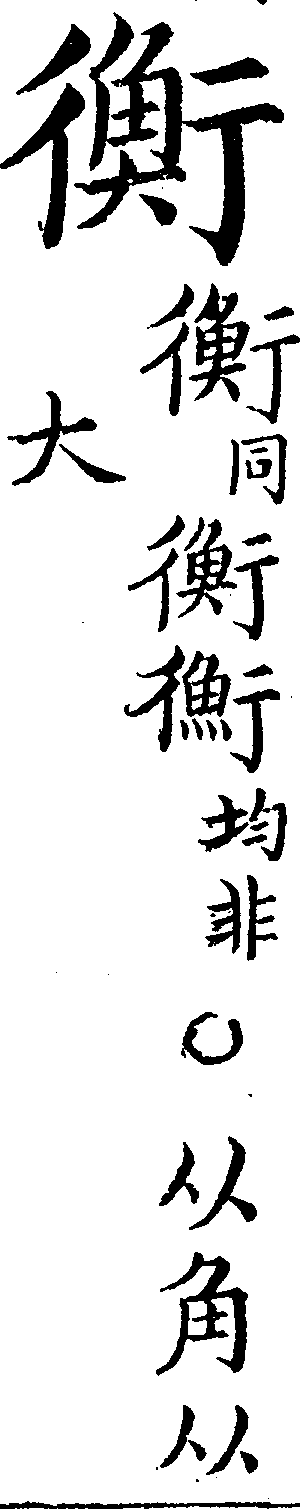 衡
衡同衡均非○从角从
大